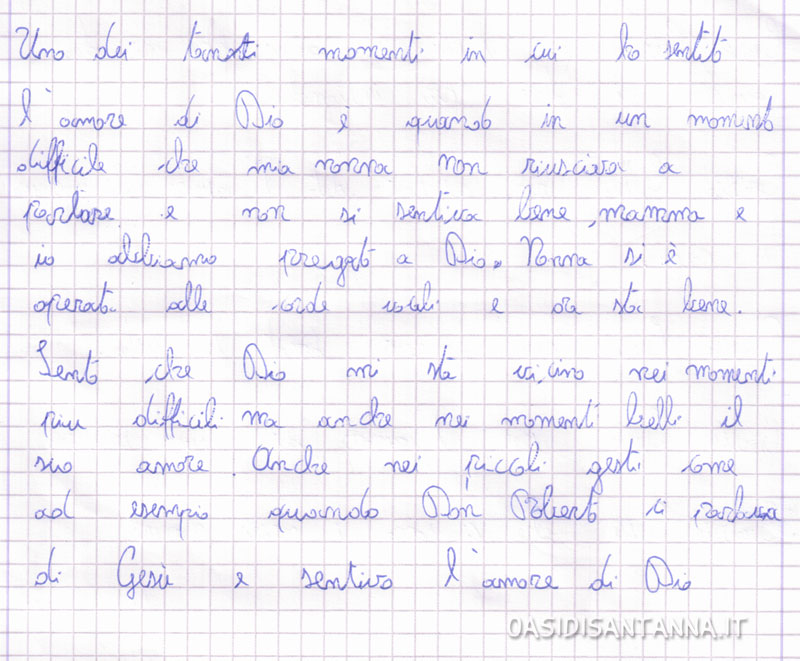 Uno dei tanti momenti in cui ho sentito
l'amore di Dio è quando in un momento
difficile che mia nonna non riusciva a
parlare e non si sentiva bene, mamma e
io abbiamo pregato a Dio. Nonna si è
operata alle corde vocali e ora sta bene.
Sento che Dio mi sta vicino nei momenti
piu difficili ma anche nei momenti belli il
suo amore. Anche nei piccoli gesti come
ad esempio quando Don Roberto ci parlava
di Gesù e sentivo l'amore di Dio
OASIDISANTANNA.IT